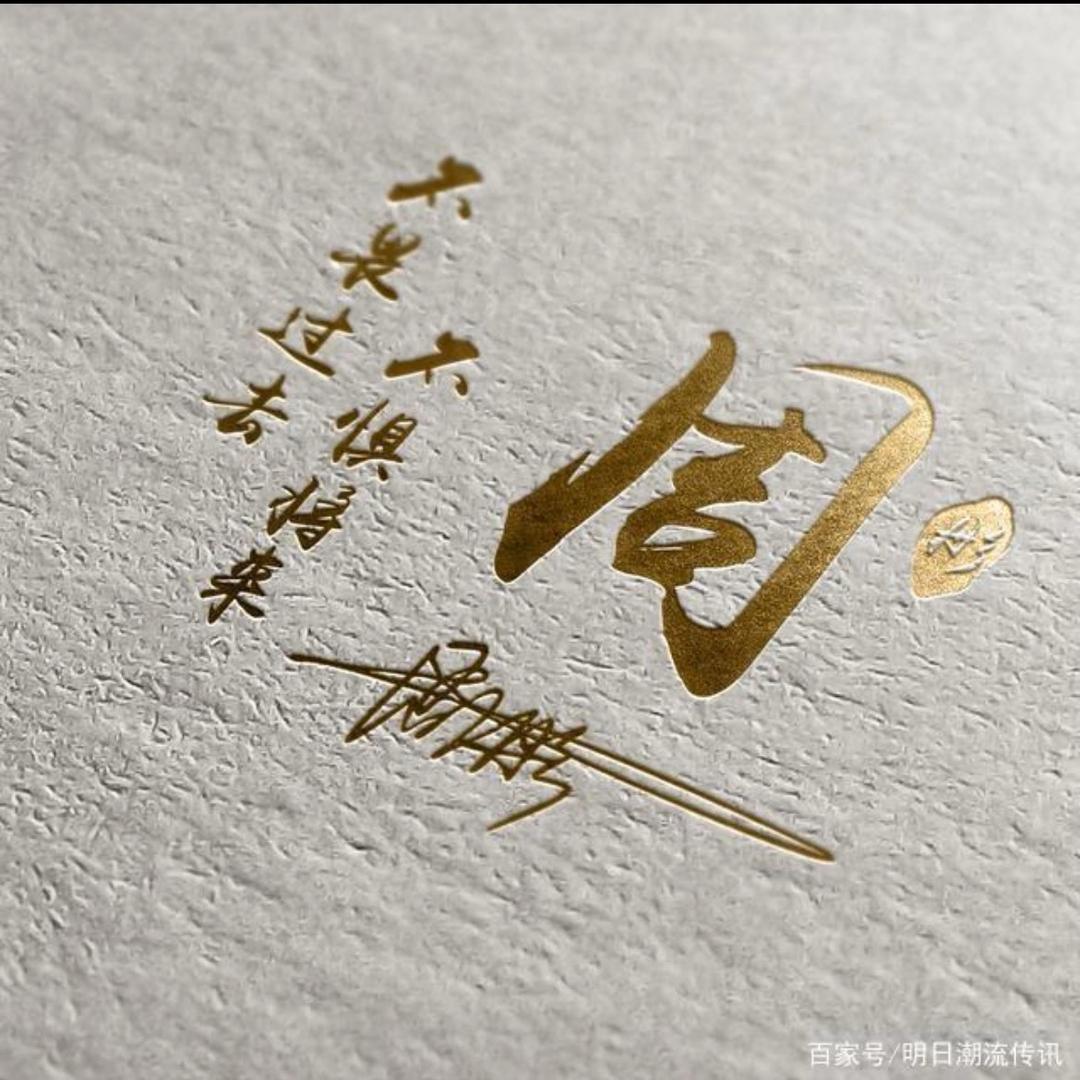 周
不惧将来
不畏过去
百家号/明日潮流传讯